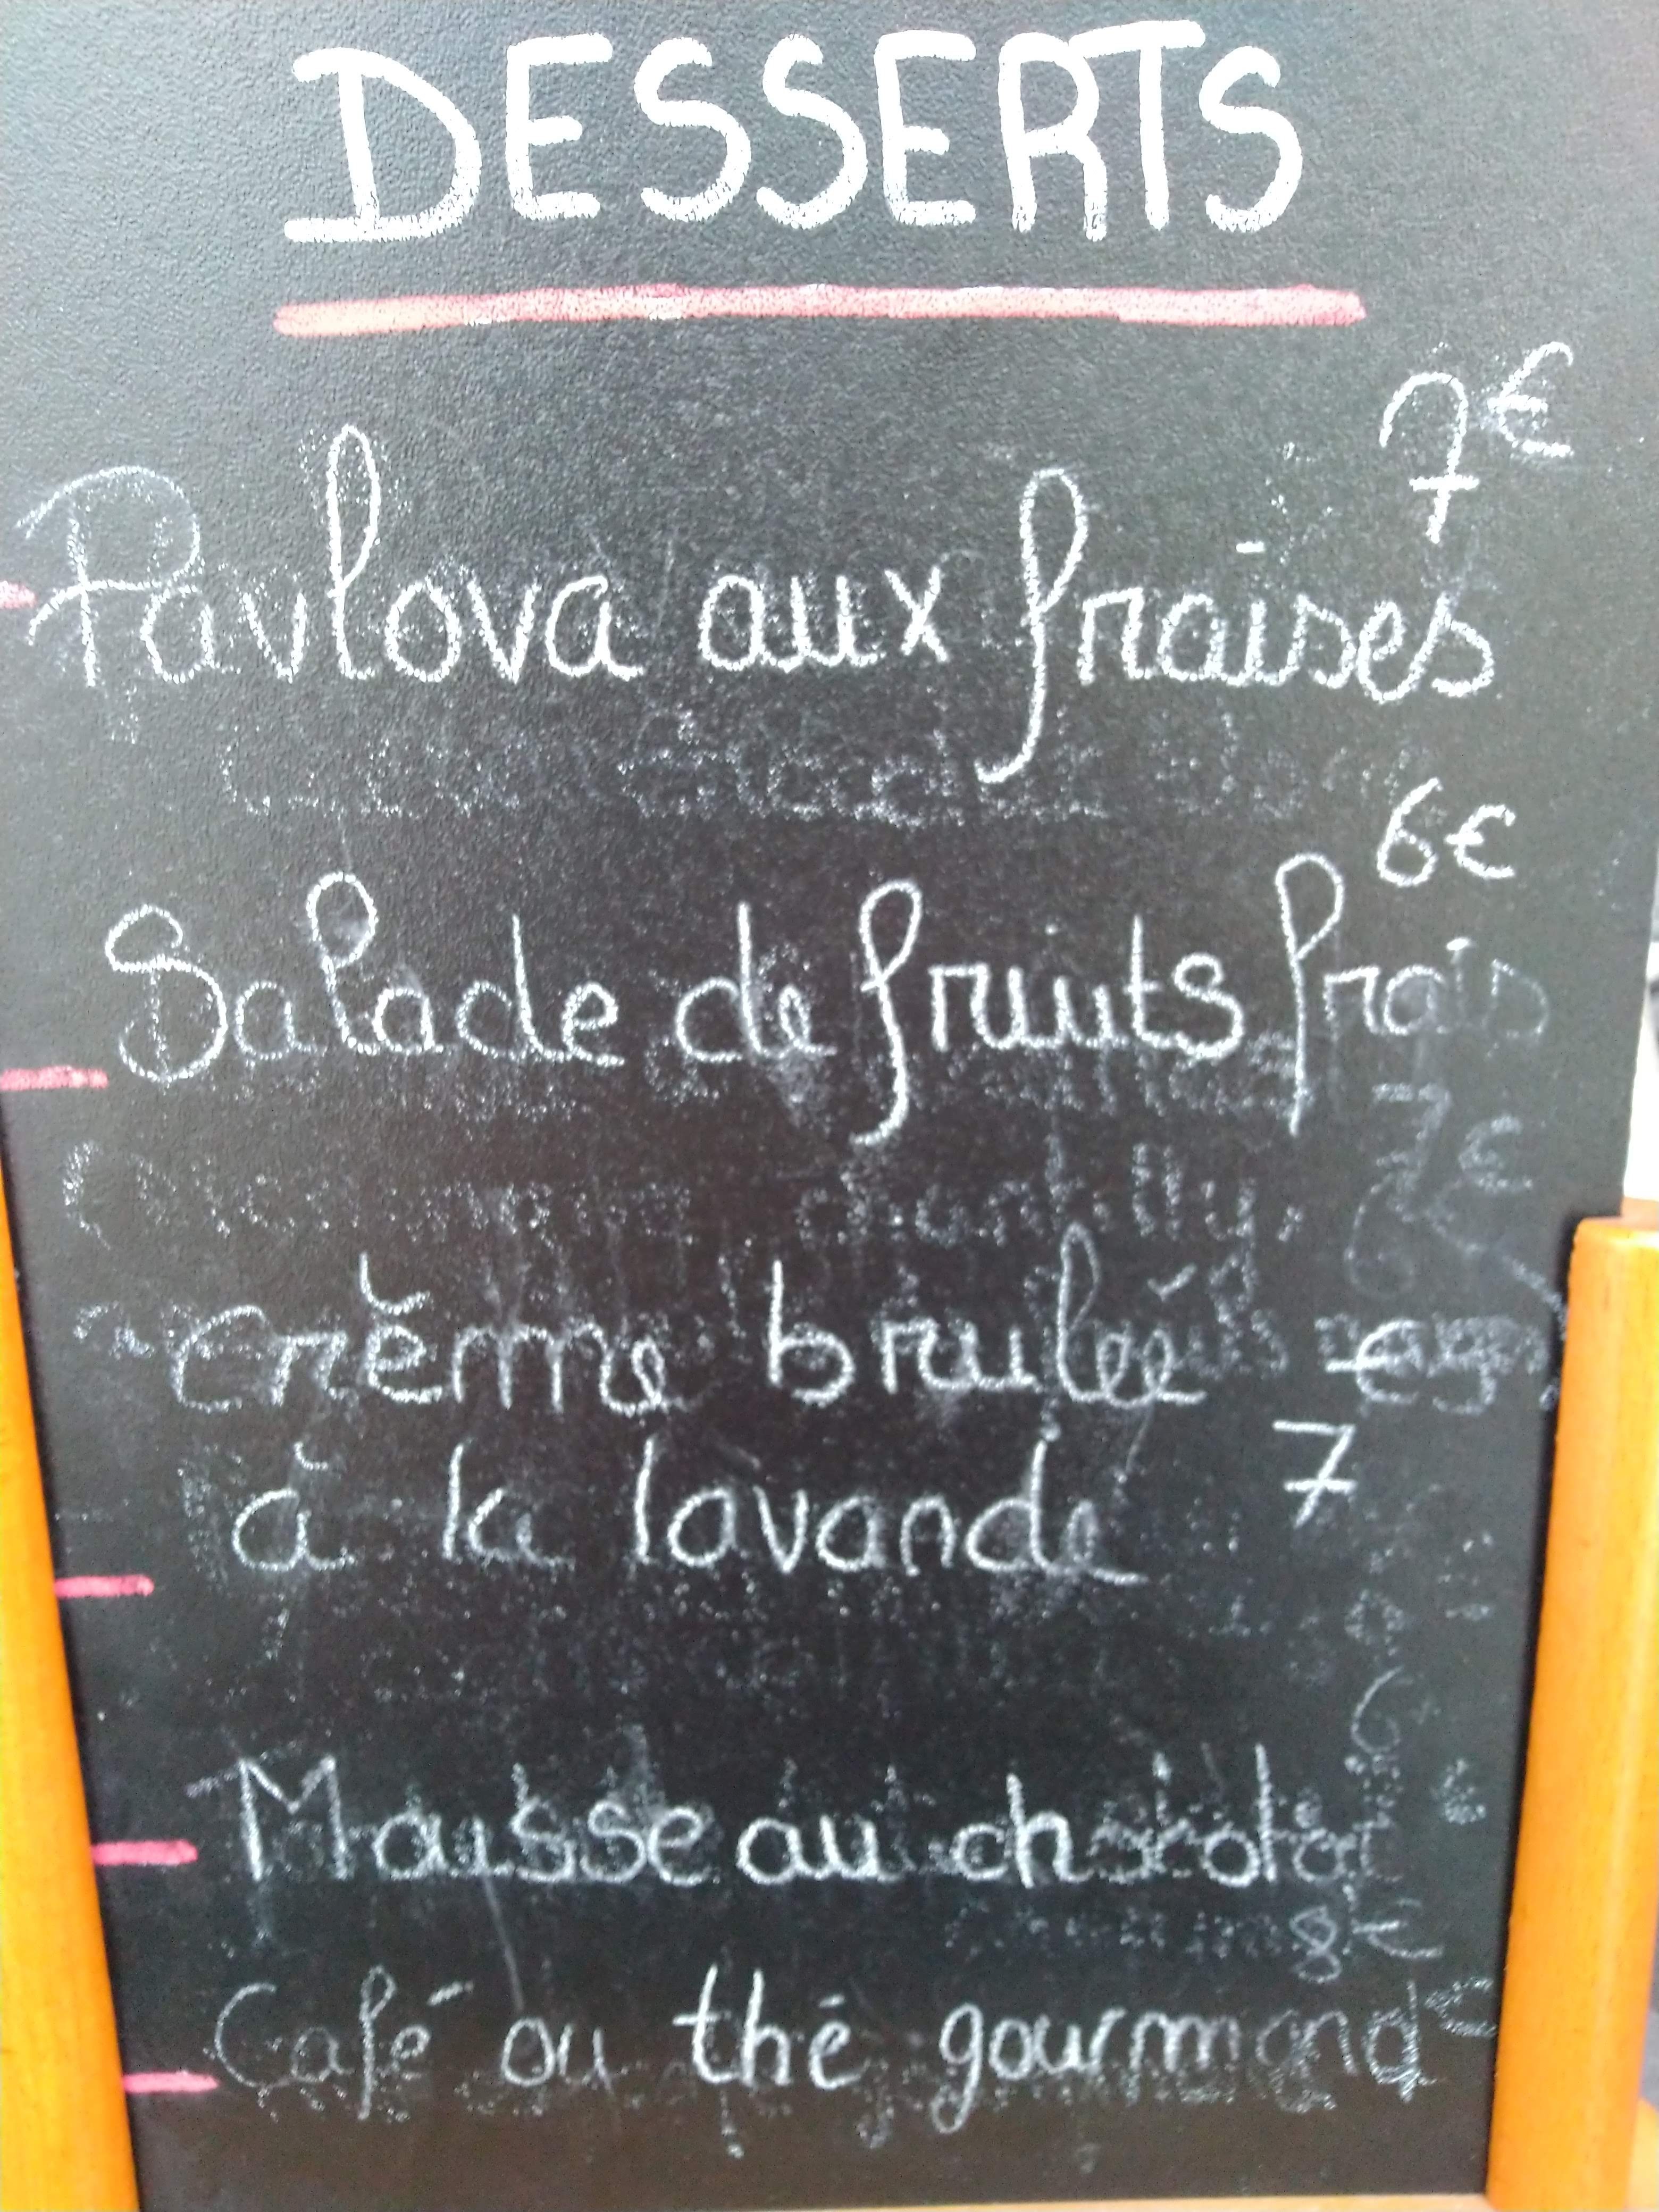 DESSERTS
7€
Pavlova aux fraises
6€
Salade de fruits frais
7€
crème brulée
à la lavande 7
6
Mousse au chocolat
8€
Café ou thé gourmand